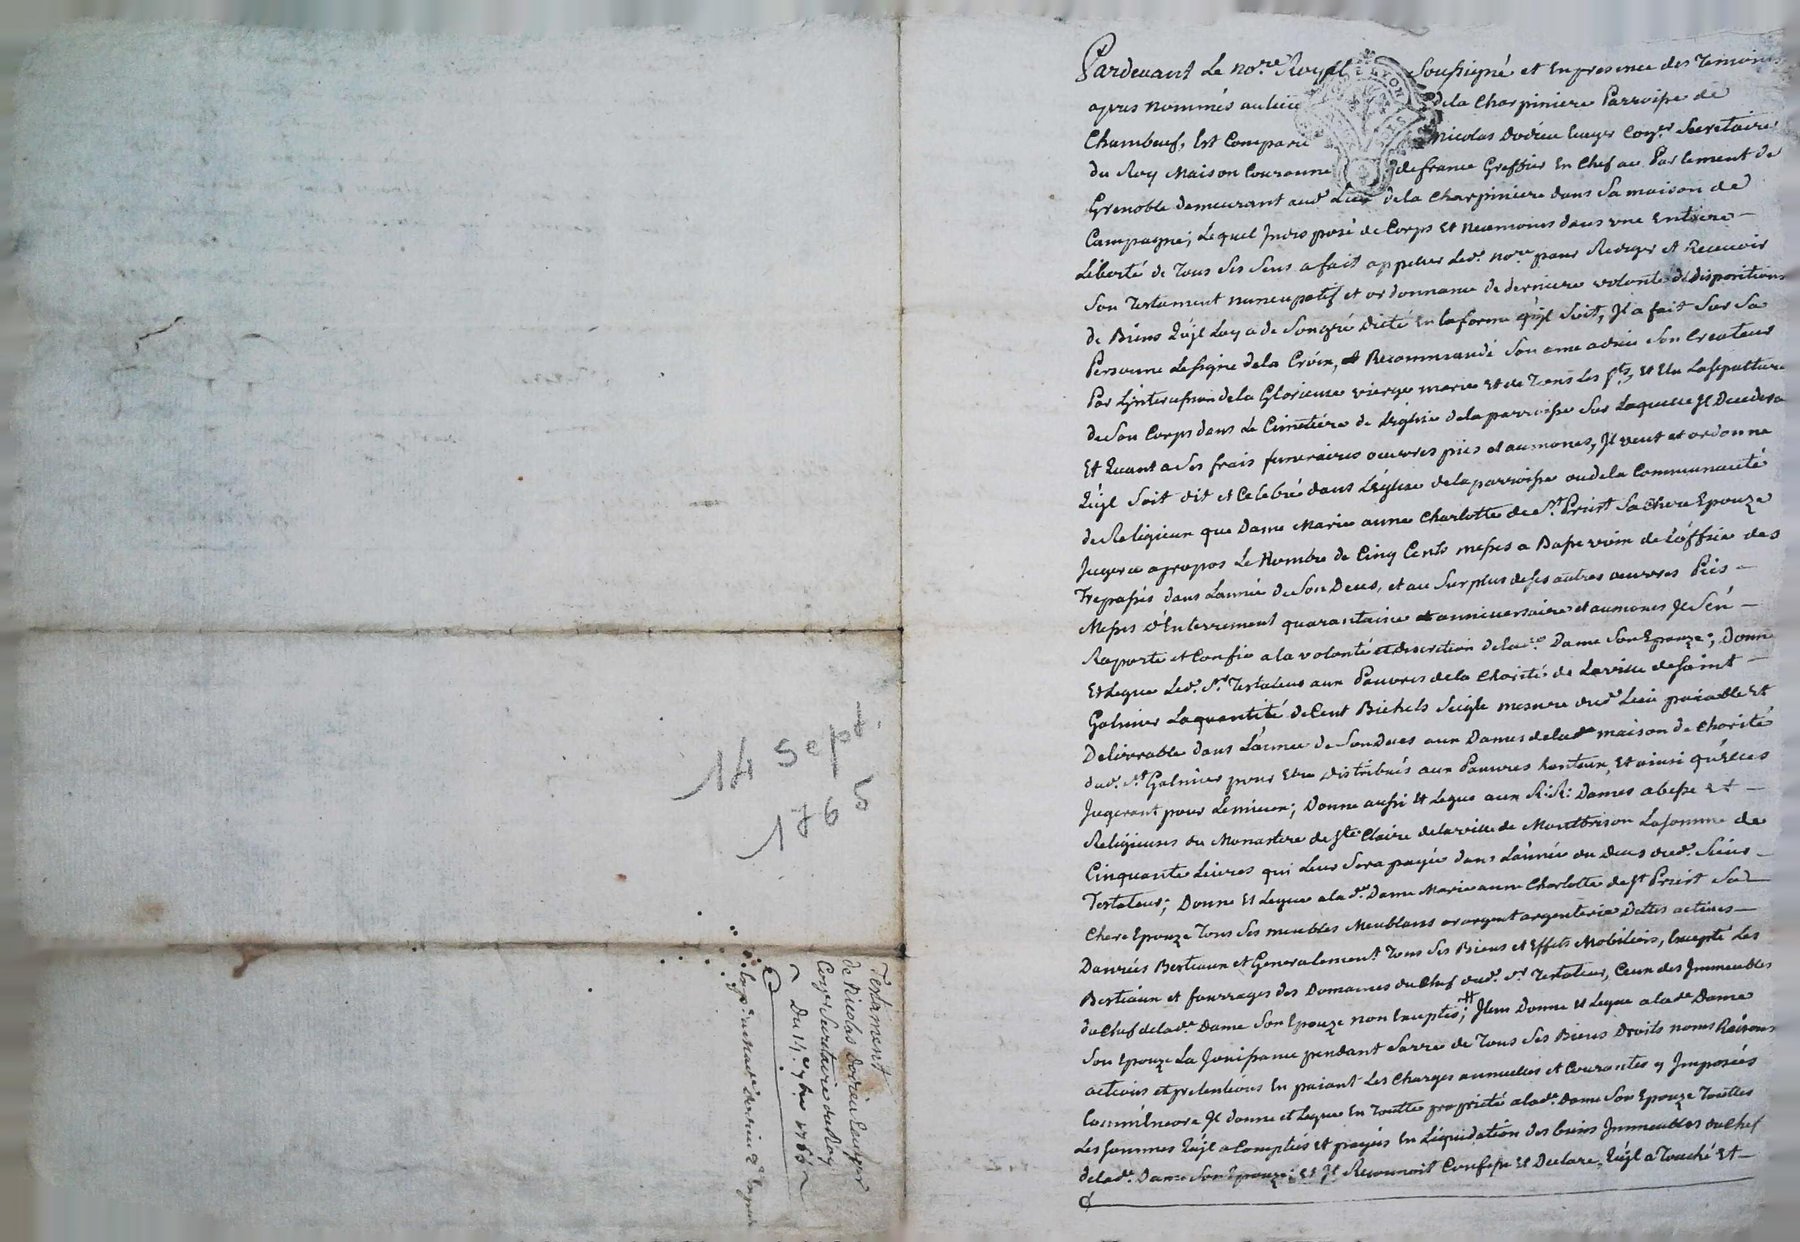 Pardevant Le no.re Royal Soussigné et En presence des Temoins
apres nommés au Lieu de la Charpiniere Parroisse de
Chambœuf, Est Comparu Nicolas Dodieu Ecuyer Con.er Secretaire
du Roy Maison Couronne de france Greffier En Chef au Parlement de
Grenoble demeurant aud. Lieu de la Charpiniere dans Sa maison de
Campagne; Lequel Indisposé de Corps Et neanmoins dans une Entiere
Liberté de Tous Ses Sens a fait appeller Led. no.re pour Rediger et Recevoir
Son Testament nuncupatif et ordonnance de derniere volonté de dispositions
de Biens Qu'jl Luy a de Son gré dicté En la forme qu'jl Suit, Jl a fait Sur Sa
Personne Le Signe de la Croix, Recommandé Son ame a dieu Son Createur
Par L'jntercession de la Glorieuse vierge marie et de Tous Les S.ts, Et Elu La Sepulture
de Son Corps dans Le Cimetiére de L'eglise de la parroisse Sur Laquelle Jl Decedera
Et Quant a Ses frais funeraires œuvres pies et aumones, Jl veut et ordonne
Qu'jl Soit dit et Celebré dans L'églize de la parroisse ou de la Communauté
de Religieux que Dame Marie anne Charlotte de S.t Priest Sa Chere Epouze
Jugera apropos Le Nombre de Cinq Cents messes a Basse voix de L'office des
Trepassés dans L'année de Son Deces, et au Surplus de Ses autres œuvres Pies
Messes d'Enterrement quarantaine et anniversaire et aumones Jl S'en
Raporte et Confie a la volonté et discretion de la d. Dame Son Epouze; Donne
Et Legue Led. S.r Testateur aux Pauvres de la Charité de La ville de Saint
Galmier La quantité de Cent Bichets Seigle mesure dud. Lieu paiable Et
Delivrable dans L'année de Son Deces aux Dames de lad. maison de Charité
dud. S.t Galmier pour Etre distribués aux Pauvres honteux, Et ainsi qu'Elles
Jugeront pour Le mieux; Donne aussi Et Legue aux R:R: Dames abesse Et
Religieuses du Monastere de S.te Claire de la ville de Montbrison La Somme de
Cinquante Livres qui Leur Sera payée dans L'année du deces dud. Sieur
Testateur; Donne Et Legue a la d. Dame Marie anne Charlotte de S.t Priest Sa
Chere Epouze Tous Ses meubles Meublans or argent argenterie Dettes actives
Danrées Bestiaux et Generalement Tous Ses Biens et Effets Mobiliers, Excepté Les
Bestiaux et fourrages des Domaines du Chef dud. S.r Testateur, Ceux des Immeubles
du Chef de lad. Dame Son Epouze non Exceptés; Jtem Donne Et Legue a lad. Dame
Son Epouze La Jouissance pendant Sa vie de Tous Ses Biens Droits noms Raisons
actions et pretentions En paiant Les Charges annuelles et Courantes y Imposées
Comm'Encore Jl donne et Legue En Toutte proprieté a lad. Dame Son Epouze Touttes
Les Sommes Qu'jl a Comptées et payées En Liquidation des biens Immeubles du Chef
de lad. Dame Son Epouze; Et Jl Reconnoit Confesse Et Declare, Qu'jl a Touché Et
14 sept
1765
Testament
de Nicolas Dodieu Ecuyer
Con.er Secretaire du Roy
Du 14.e 7bre 1765